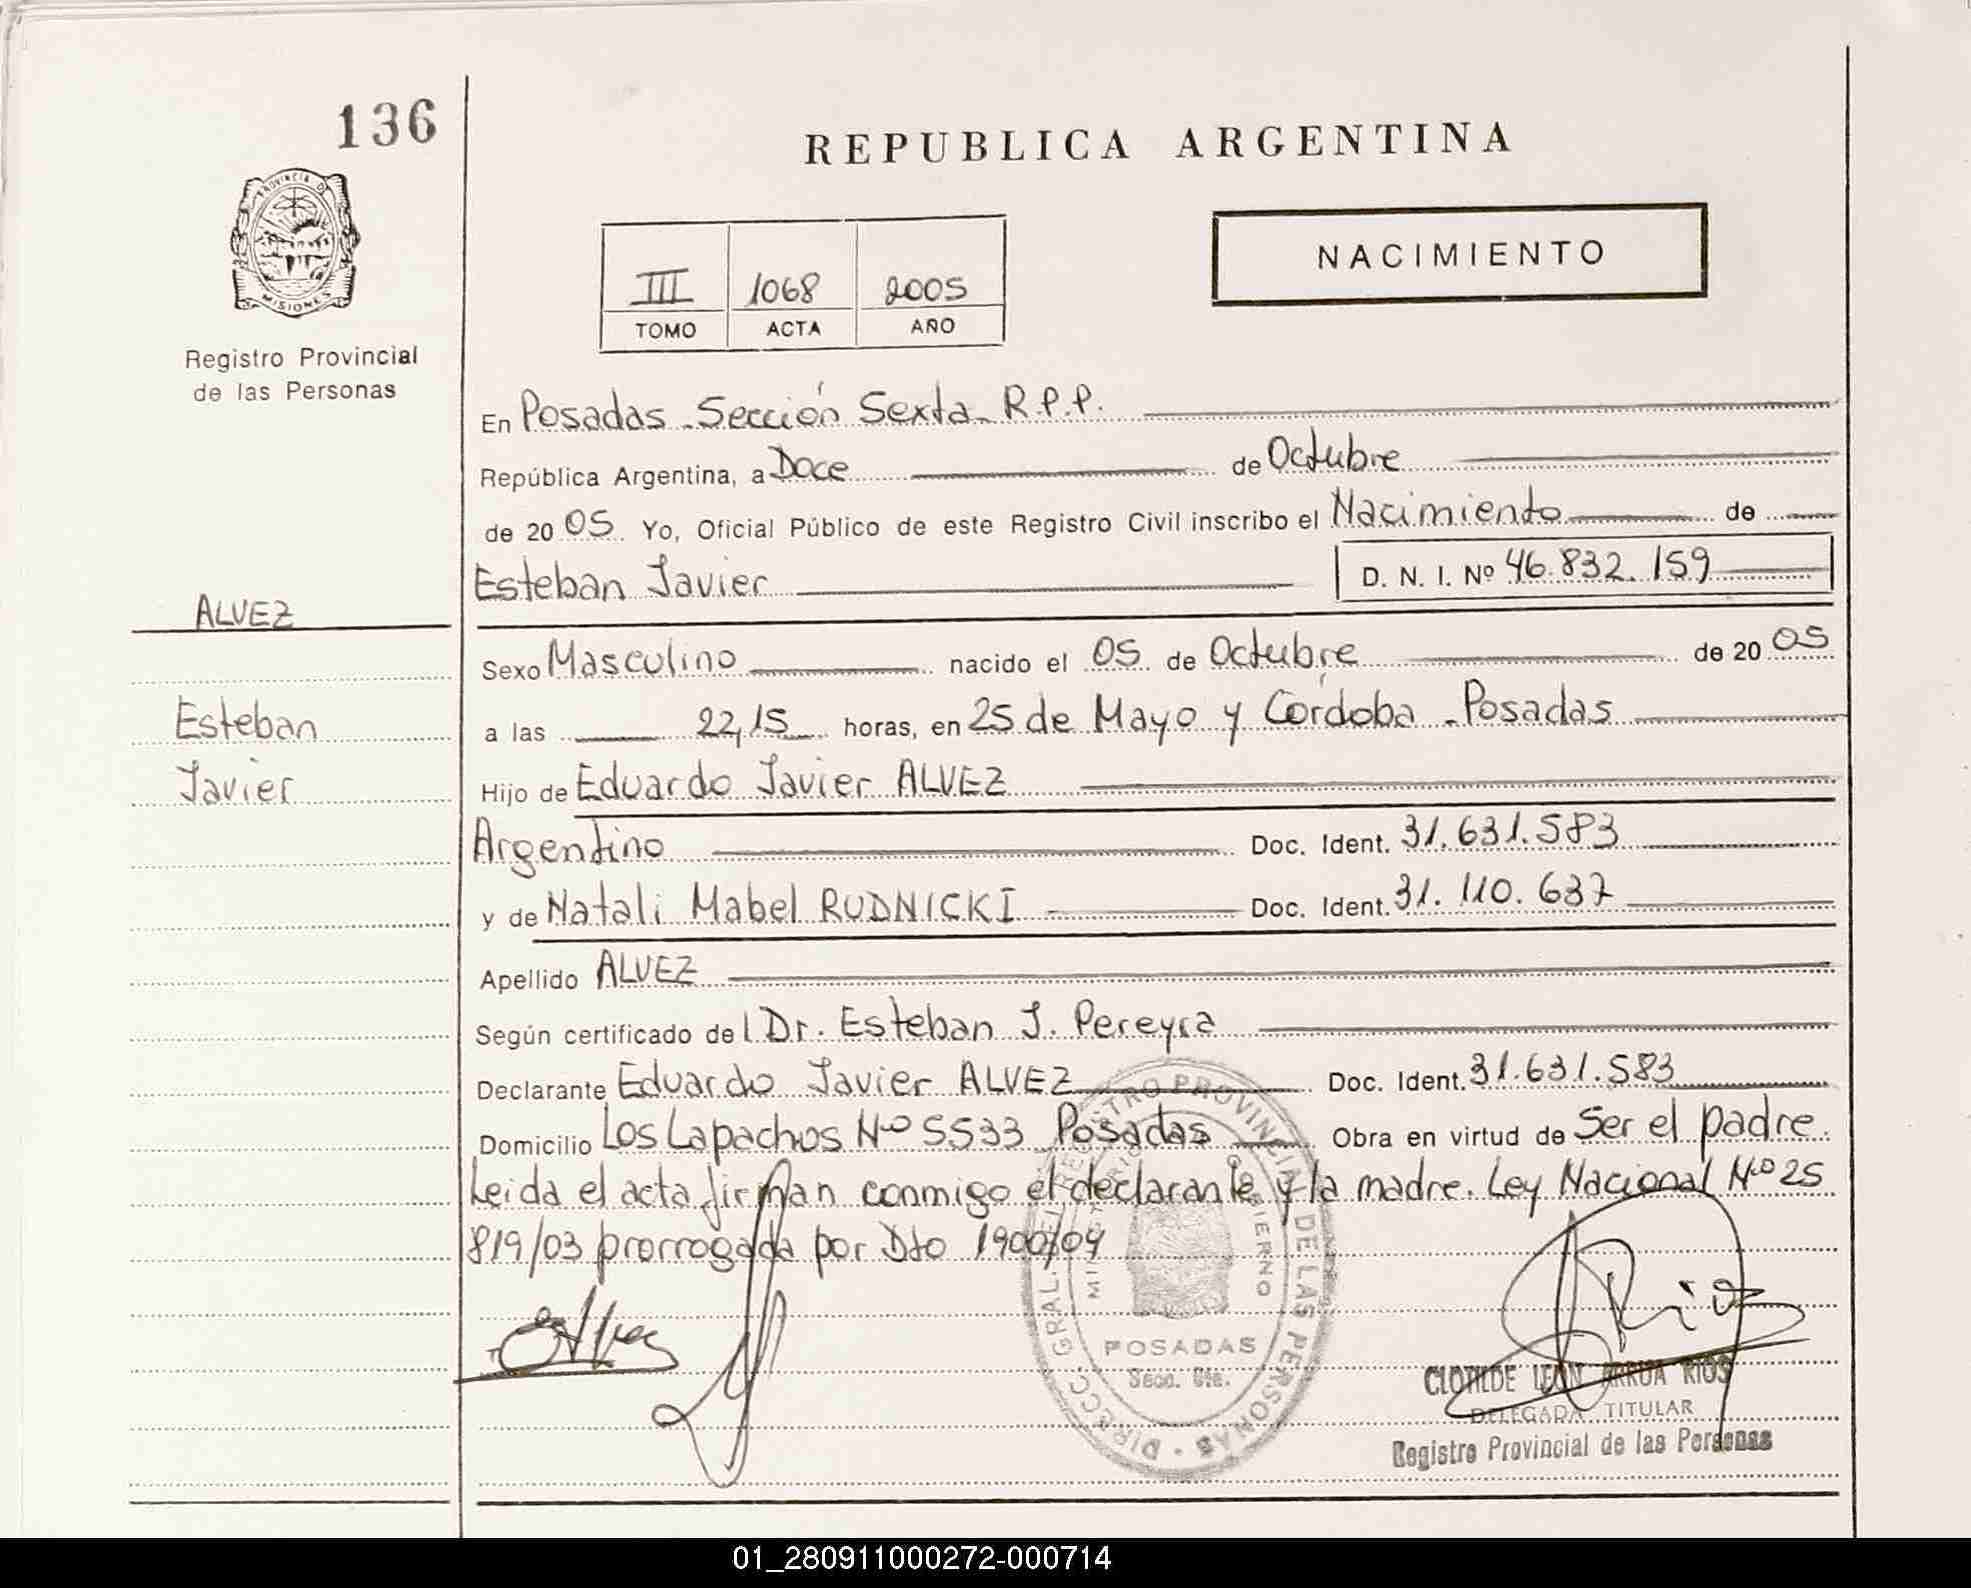 136
REPUBLICA ARGENTINA
PROVINCIA DE
MISIONES
Registro Provincial
de las Personas
NACIMIENTO
III 1068 2005
TOMO ACTA AÑO
En Posadas - Sección Sexta - R.P.P.
República Argentina, a Doce de Octubre
de 2005. Yo, Oficial Público de este Registro Civil inscribo el Nacimiento de
Esteban Javier D. N. I. Nº 46.832.159
ALVEZ
Esteban
Javier
Sexo Masculino nacido el 05 de Octubre de 2005
a las 22,15 horas, en 25 de Mayo y Córdoba - Posadas
Hijo de Eduardo Javier ALVEZ
Argentino Doc. Ident. 31.631.583
y de Natali Mabel RUDNICKI Doc. Ident. 31.110.637
Apellido ALVEZ
Según certificado del Dr. Esteban J. Pereyra
Declarante Eduardo Javier ALVEZ Doc. Ident. 31.631.583
Domicilio Los Lapachos Nº 5533 Posadas Obra en virtud de Ser el padre.
Leida el acta firman conmigo el declarante y la madre. Ley Nacional Nº 25
819/03 prorrogada por Dto 1900/04
DIRECC. GRAL. DEL REGISTRO PROVINCIAL DE LAS PERSONAS
MINISTERIO GOBIERNO
POSADAS
Secc. 6ta.
CLOTILDE LEON ARRUA RIOS
DELEGADA TITULAR
Registro Provincial de las Personas
01_280911000272-000714